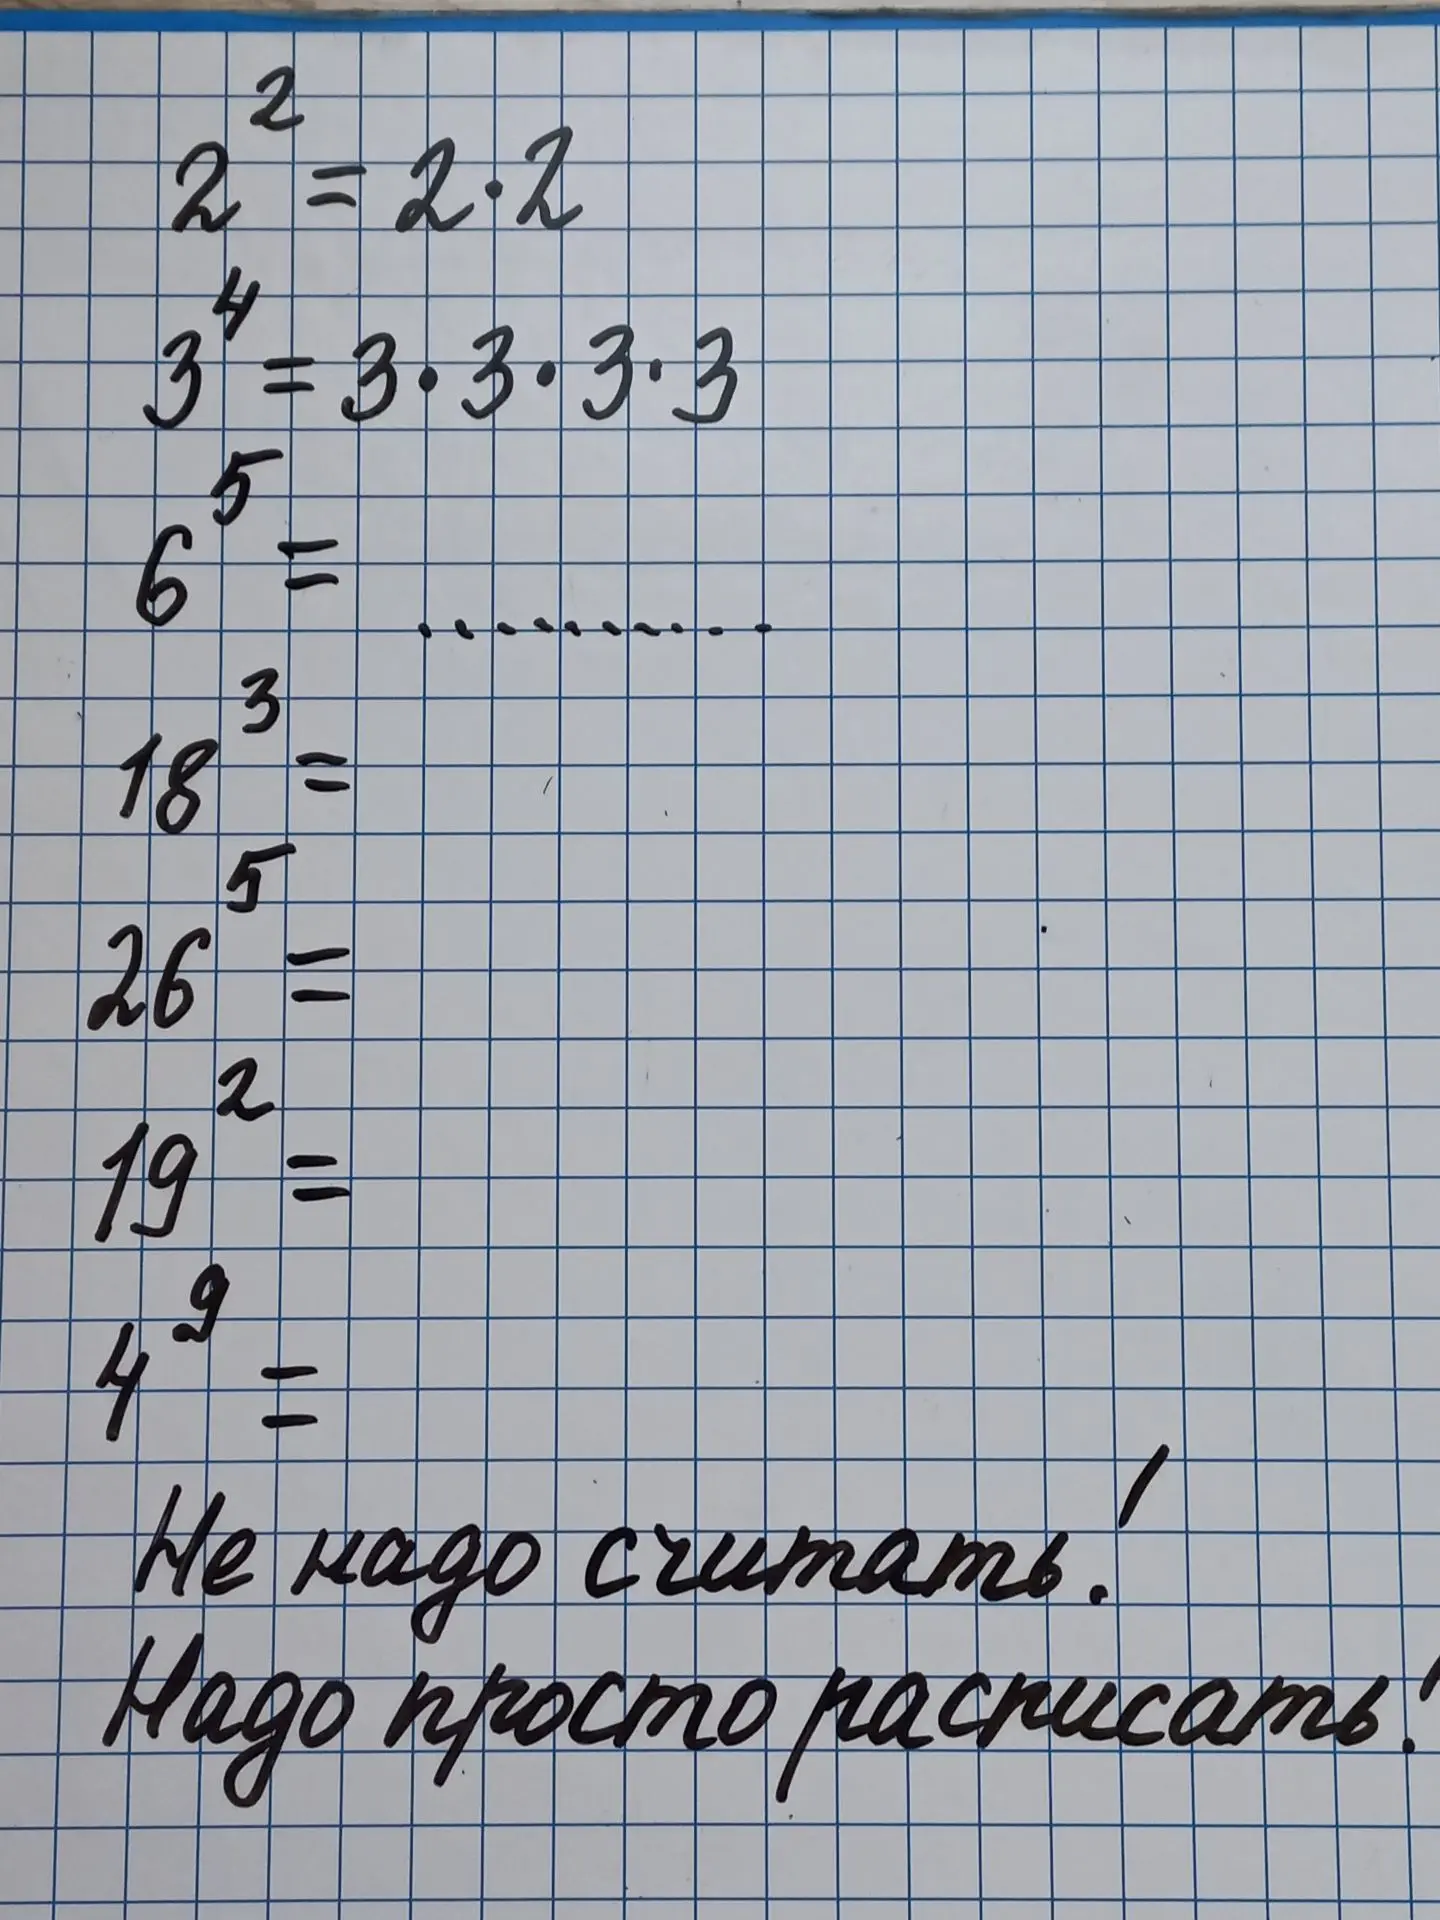 2² = 2·2
3⁴ = 3·3·3·3
6⁵ = ..........
18³ =
26⁵ =
19² =
4⁹ =
Не надо считать!
Надо просто расписать!